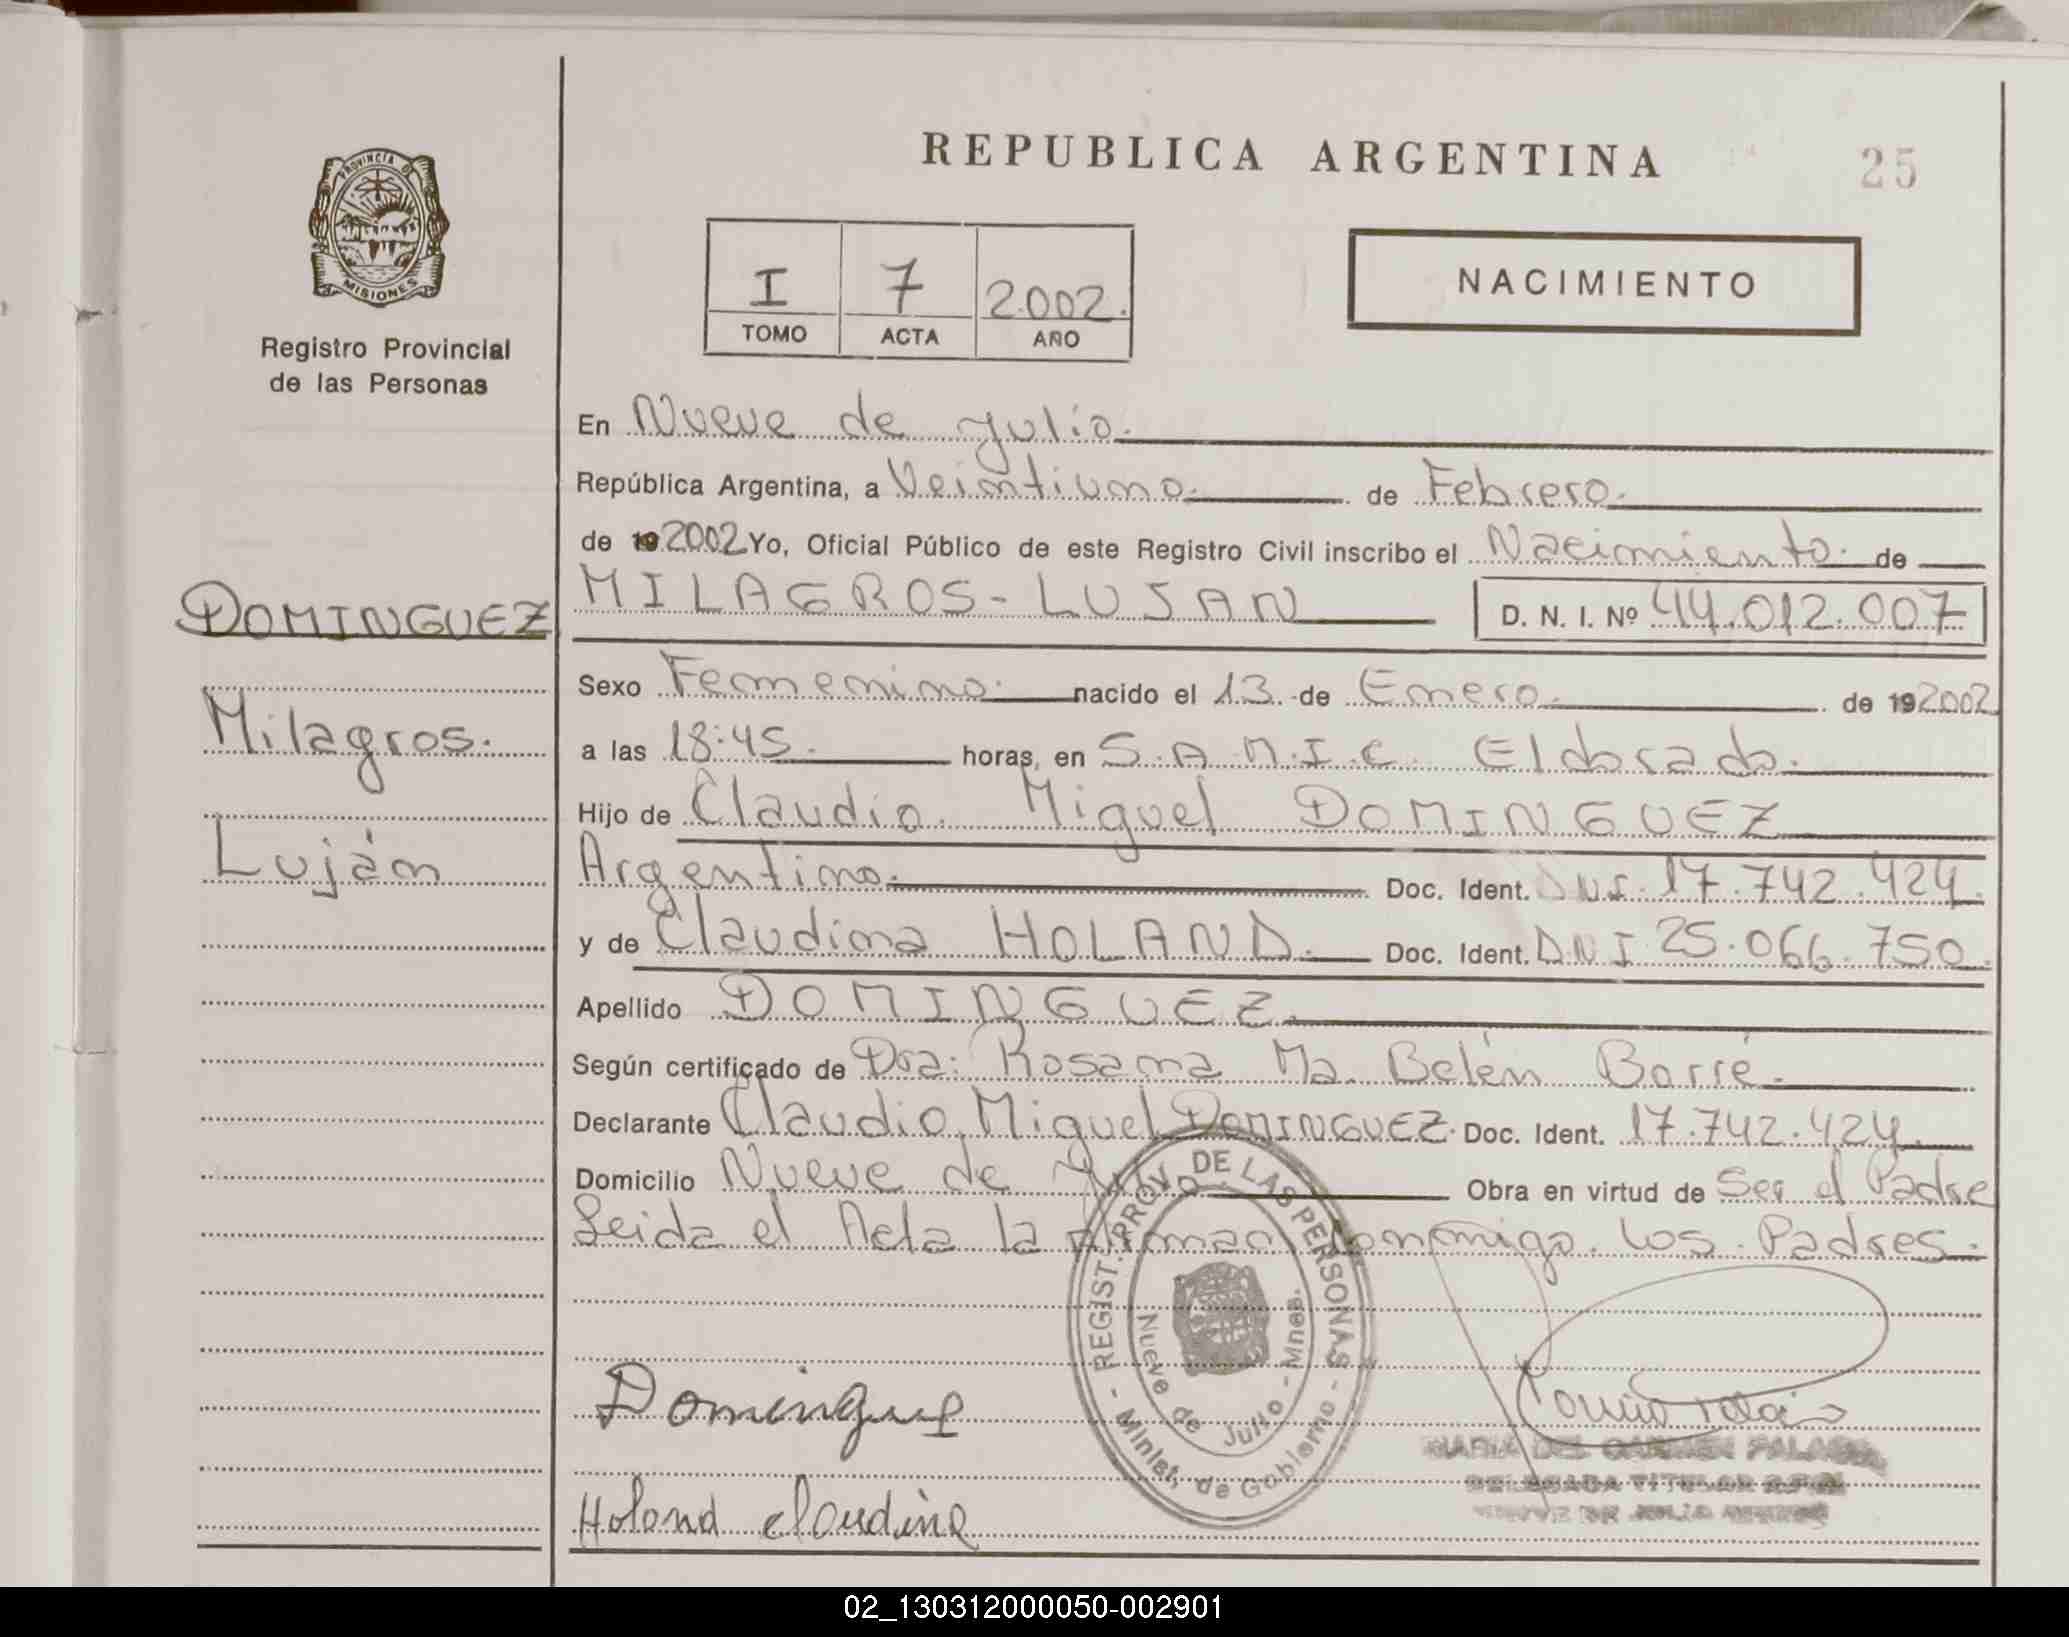 REPUBLICA ARGENTINA
25
PROVINCIA D
MISIONES
Registro Provincial
de las Personas
I 7 2.002.
TOMO ACTA AÑO
NACIMIENTO
En Nueve de Julio.
República Argentina, a Veintiuno. de Febrero.
de 19 2002 Yo, Oficial Público de este Registro Civil inscribo el Nacimiento. de
DOMINGUEZ
MILAGROS - LUJAN D. N. I. Nº 44.012.007
Sexo Femenino. nacido el 13 de Enero. de 19 2002
Milagros.
a las 18:45. horas, en S.A.M.I.C. Eldorado.
Hijo de Claudio Miguel DOMINGUEZ
Luján
Argentino. Doc. Ident. DNI. 17.742.424.
y de Claudina HOLAND. Doc. Ident. DNI 25.066.750.
Apellido DOMINGUEZ.
Según certificado de Dra: Rosana Ma. Belén Barré.
Declarante Claudio Miguel DOMINGUEZ. Doc. Ident. 17.742.424
Domicilio Nueve de Julio Obra en virtud de Ser el Padre
Leida el Acta la firman conmigo los Padres.
REGIST. PROV. DE LAS PERSONAS
Nueve de Julio - Mnes.
- Minist. de Gobierno -
Dominguez
MARIA DEL CARMEN
DELEGADA TITULAR
NUEVE DE JULIO MISIONES
Holand claudina
02_130312000050-002901